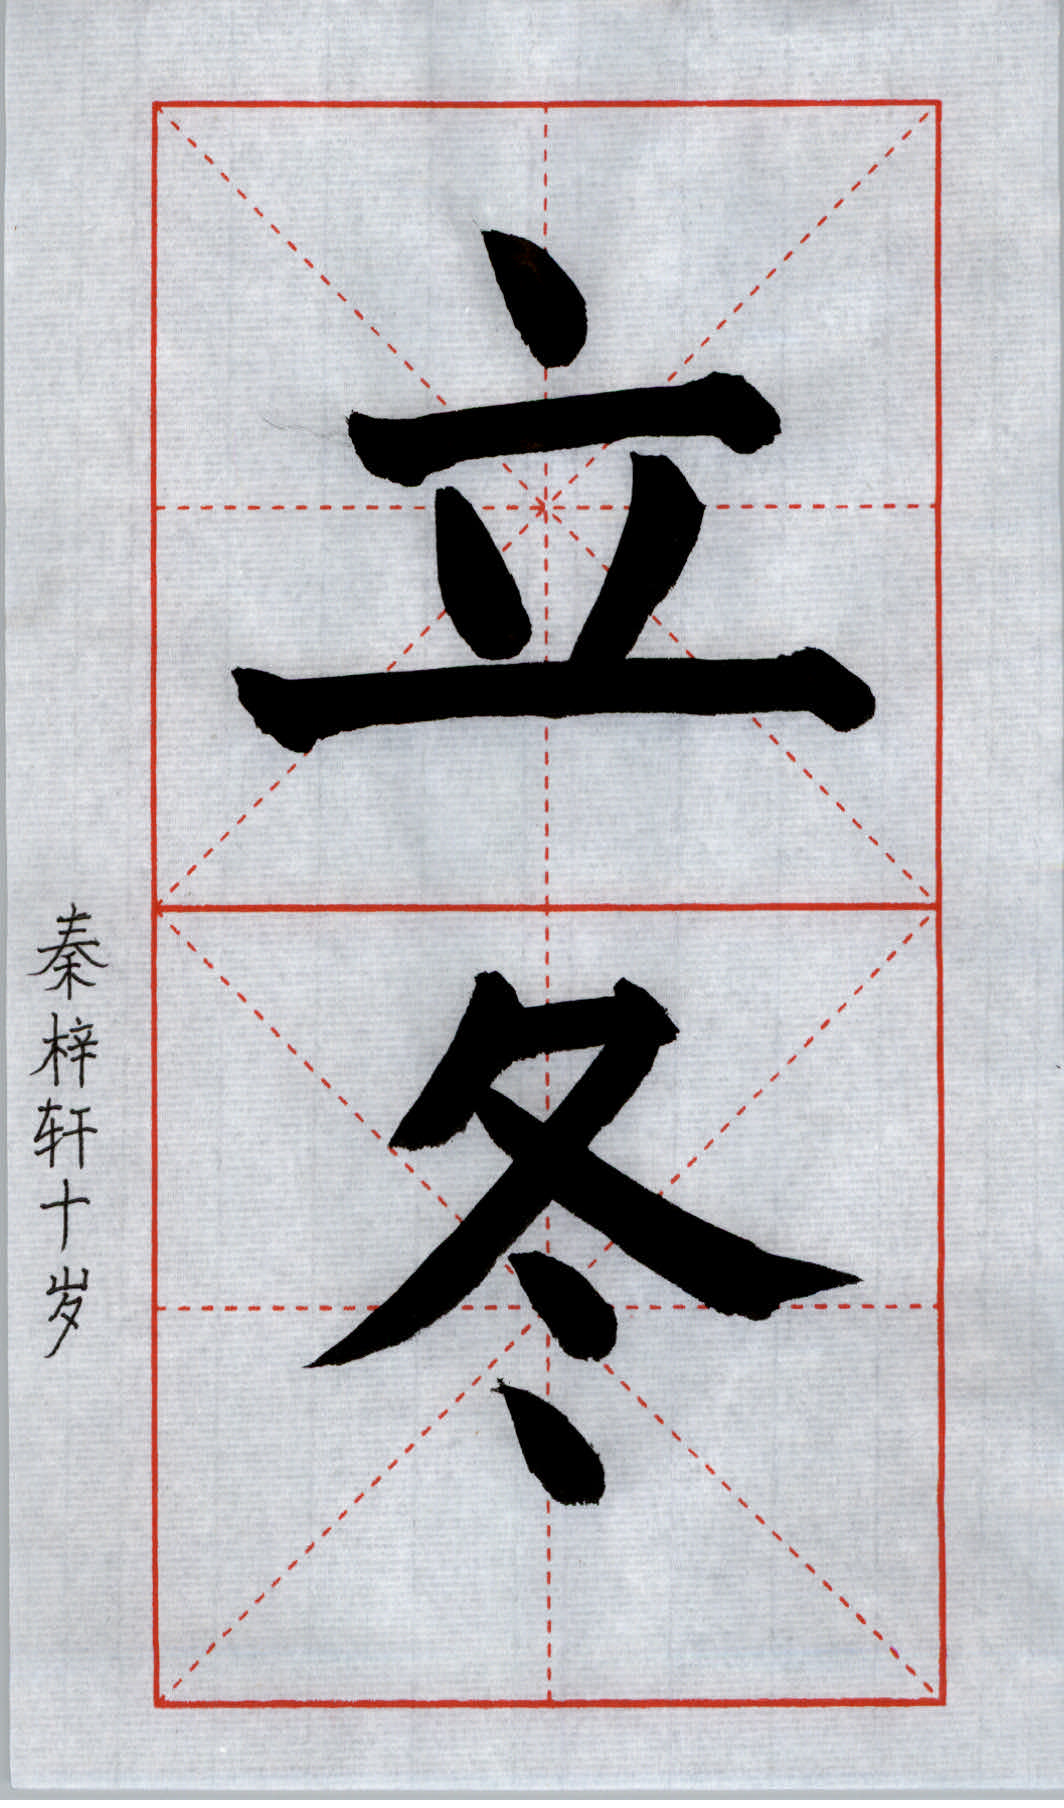 立冬
秦梓轩十岁